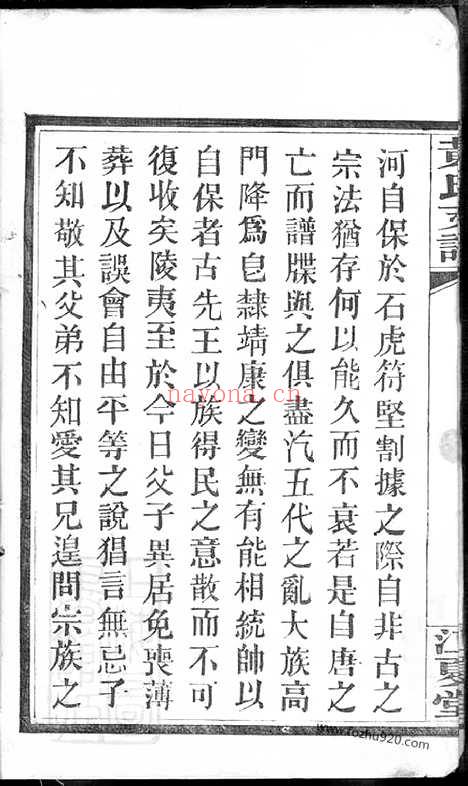 黃氏支譜
江夏堂
河自保於石虎符堅割據之際自非古之
宗法猶存何以能久而不衰若是自唐之
亡而譜牒與之俱盡汔五代之亂大族高
門降爲皂隸靖康之變無有能相統帥以
自保者古先王以族得民之意散而不可
復收矣陵夷至於今日父子異居免喪薄
葬以及誤會自由平等之說猖言無忌子
不知敬其父弟不知愛其兄遑問宗族之
navona.cn
www.fozhu920.com